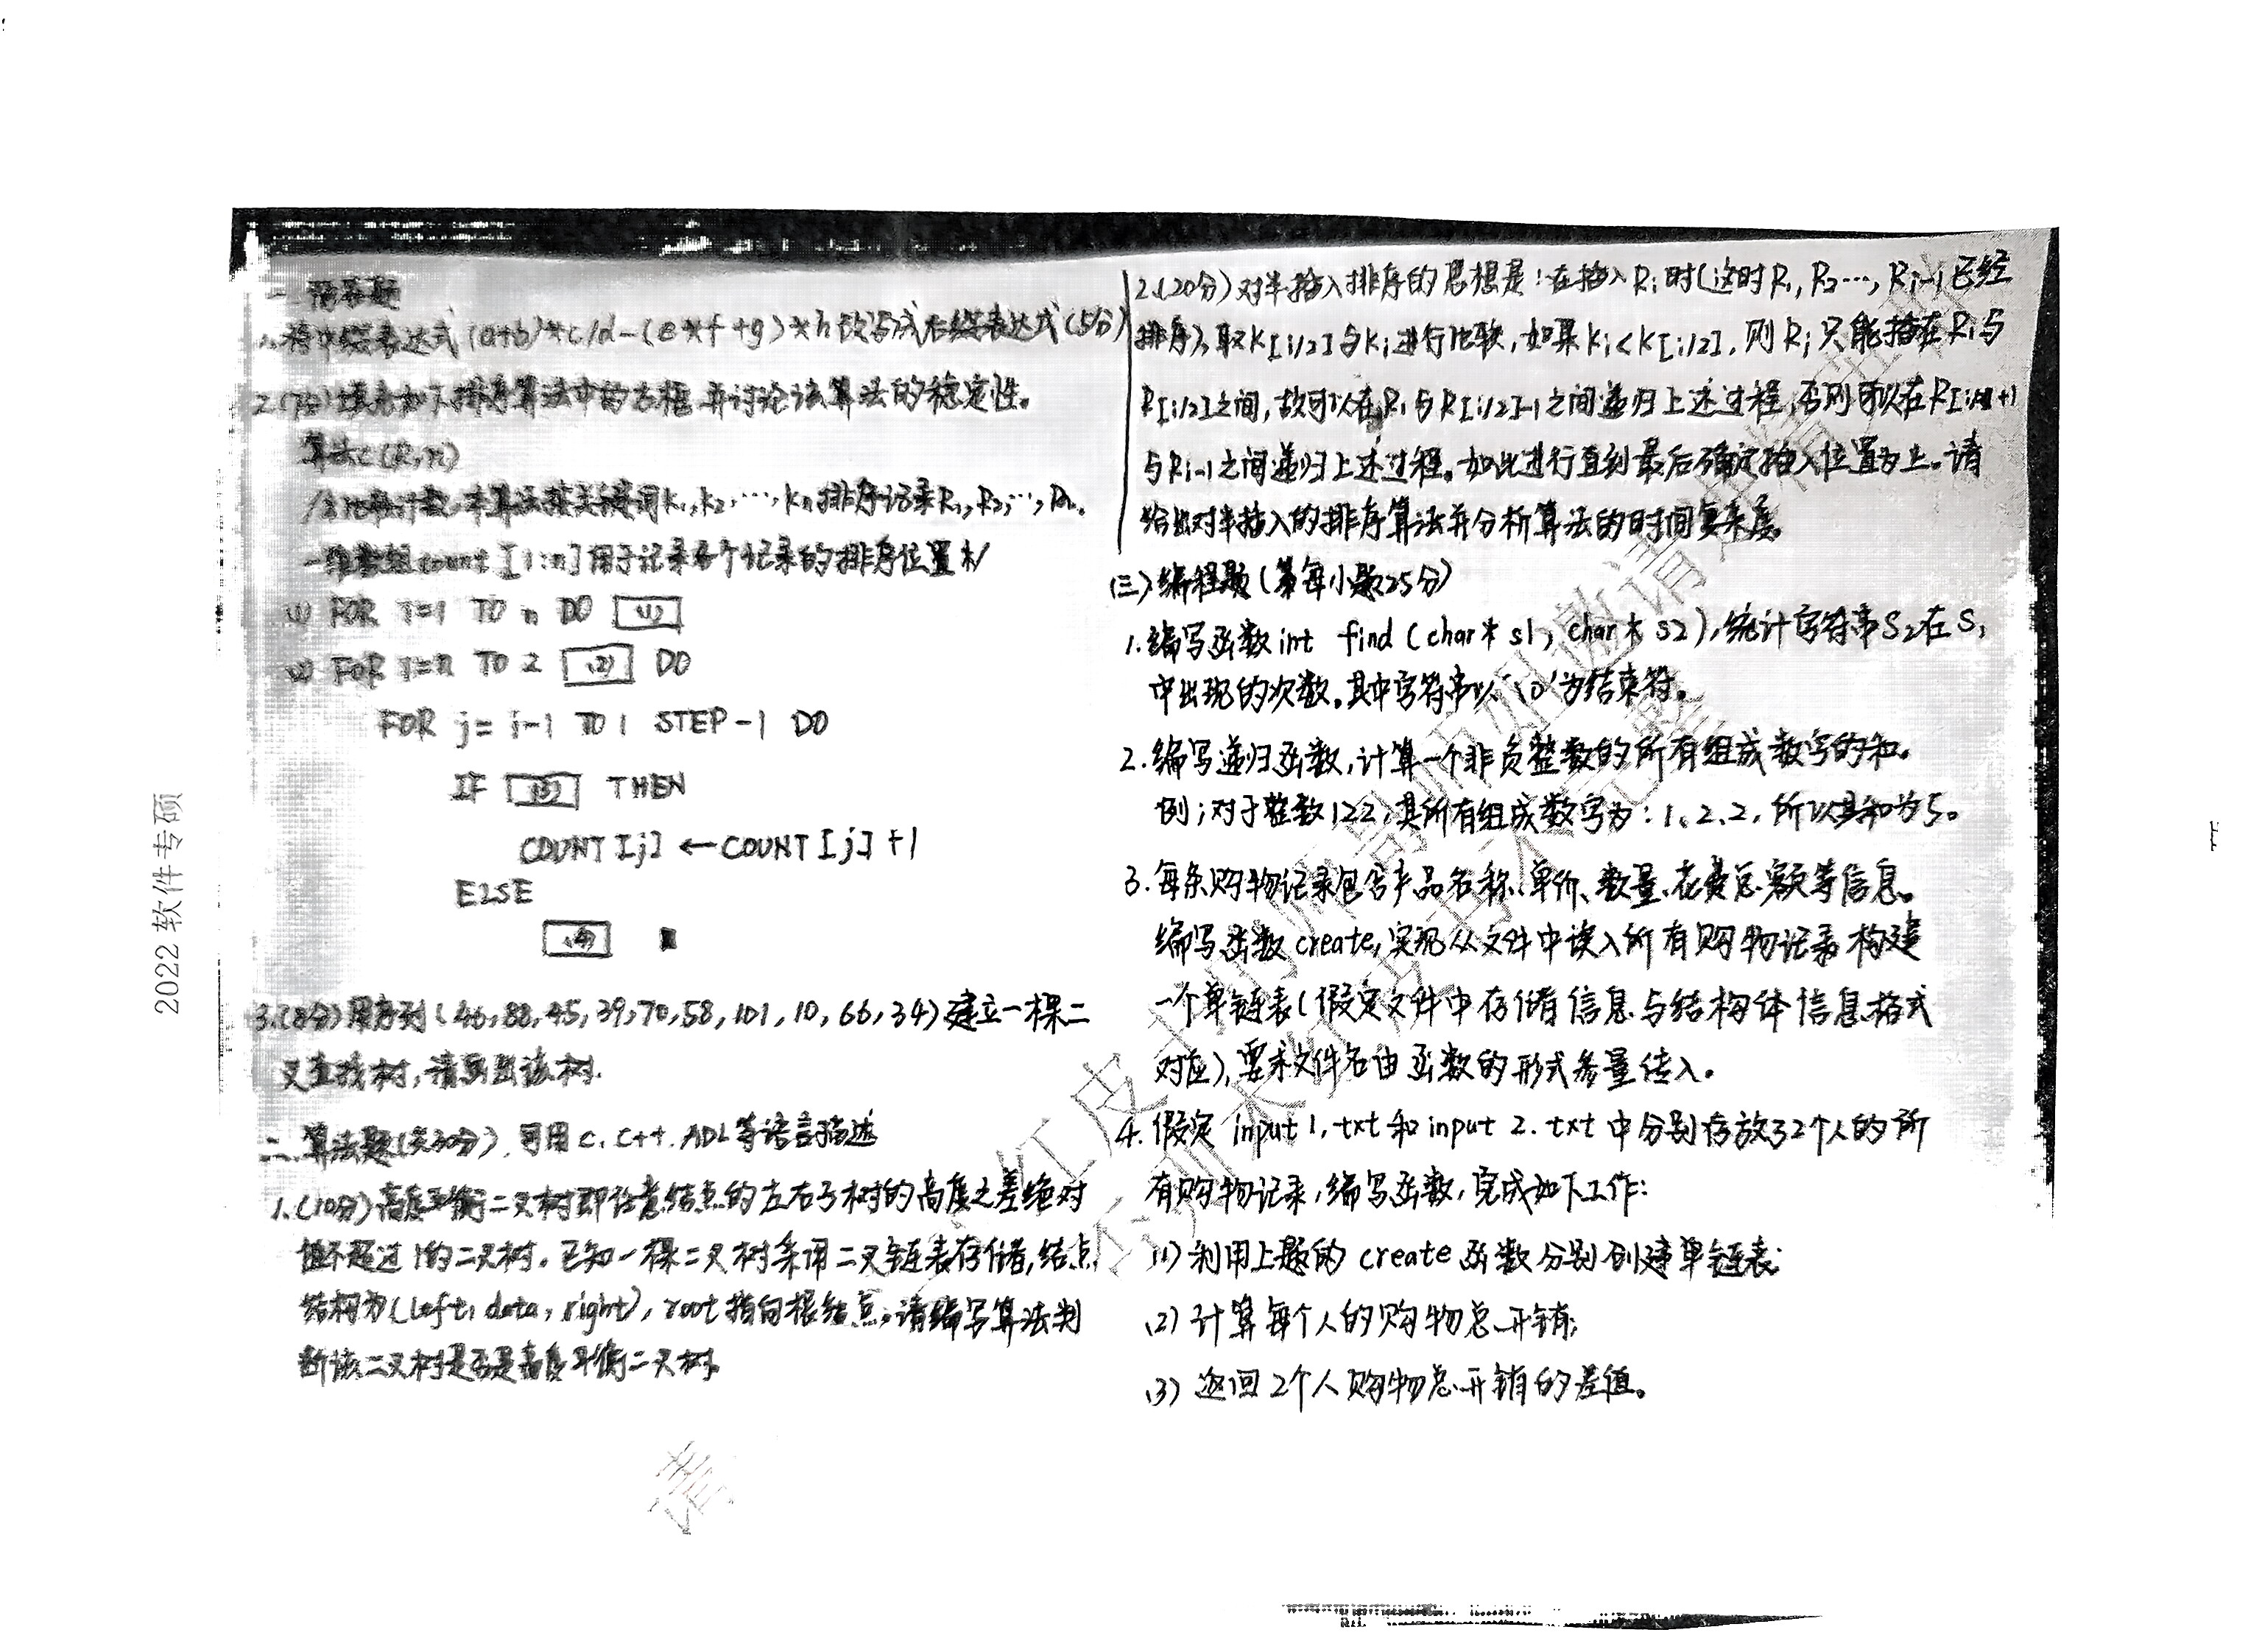 2022 软件专硕
一、简答题
1.将中缀表达式 (a+b)*c/d-(e*f+g)*h改写成后缀表达式(5分)
2.(7分)填充如下排序算法中的方框,并讨论该算法的稳定性。
算法C(R,n)
/*比较计数,本算法按关键词K1,K2,…,Kn排序记录R1,R2,…,Rn。
一维数组count[1:n]用于记录各个记录的排序位置*/
(1) FOR i=1 TO n DO (1)
(2) FOR i=n TO 2 (2) DO
FOR j=i-1 TO 1 STEP-1 DO
IF (3) THEN
COUNT[j] ←COUNT[j]+1
ELSE
(4)
3.(8分)用序列(46,88,45,39,70,58,101,10,66,34)建立一棵二
叉查找树,请画出该树.
二.算法题(共30分),可用C、C++、ADL等语言描述
1.(10分)高度平衡二叉树即任意结点的左右子树的高度之差绝对
值不超过1的二叉树。已知一棵二叉树采用二叉链表存储,结点
结构为(left,data,right),root指向根结点。请编写算法判
断该二叉树是否是高度平衡二叉树.
2.(20分)对半插入排序的思想是:在插入Ri时(这时R1,R2…,Ri-1已经
排序),取K[i/2]与Ki进行比较,如果Ki<K[i/2],则Ri只能插在R1与
R[i/2]之间,故可以在R1与R[i/2]-1之间递归上述过程,否则可以在R[i/2]+1
与Ri-1之间递归上述过程。如此进行直到最后确定插入位置为止。请
给出对半插入的排序算法并分析算法的时间复杂度。
(三)编程题(第每小题25分)
1.编写函数int find(char* s1, char* s2),统计字符串S2在S1
中出现的次数。其中字符串以'\0'为结束符。
2.编写递归函数,计算一个非负整数的所有组成数字的和。
例;对于整数122,其所有组成数字为:1、2、2,所以其和为5。
3.每条购物记录包含产品名称、单价、数量、花费总额等信息。
编写函数create,实现从文件中读入所有购物记录构建
一个单链表(假定文件中存储信息与结构体信息格式
对应),要求文件名由函数的形式参量传入。
4.假定input 1.txt和input 2.txt中分别存放了2个人的所
有购物记录,编写函数,完成如下工作:
(1)利用上题的create函数分别创建单链表;
(2)计算每个人的购物总开销;
(3)返回2个人购物总开销的差值。